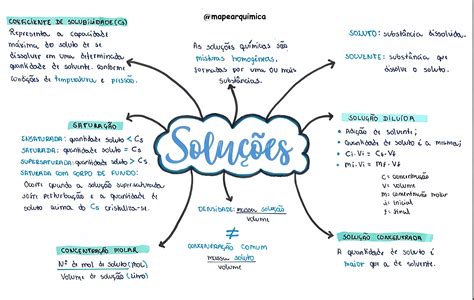 @mapearquimica
COEFICIENTE DE SOLUBILIDADE (Cs)
Representa a capacidade
máxima do soluto de se
dissolver em uma determinada
quantidade de solvente. conforme
condições de temperatura e pressão.
As soluções químicas são
misturas homogêneas,
formadas por uma ou mais
substâncias.
SOLUTO: substância dissolvida.
SOLVENTE: substância que
dissolve o soluto.
SATURAÇÃO
INSATURADA: quantidade soluto < Cs
SATURADA: quantidade soluto = Cs
SUPERSATURADA: quantidade soluto > Cs
SATURADA COM CORPO DE FUNDO:
Ocorre quando a solução supersaturada
sofre perturbação e a quantidade de
soluto acima do Cs cristaliza-se.
Soluções
SOLUÇÃO DILUÍDA
• Adição de solvente;
• Quantidade de soluto é a mesma;
• Ci.Vi = Cf.Vf
• mi.Vi = Mf.Vf
C = concentração
V = volume
m = concentração molar
i = inicial
f = final
CONCENTRAÇÃO MOLAR
Nº de mol do soluto (mol)
Volume da solução (litro)
DENSIDADE: massa solução
volume
≠
CONCENTRAÇÃO COMUM
massa soluto
volume
SOLUÇÃO CONCENTRADA
A quantidade de soluto é
maior que a de solvente.